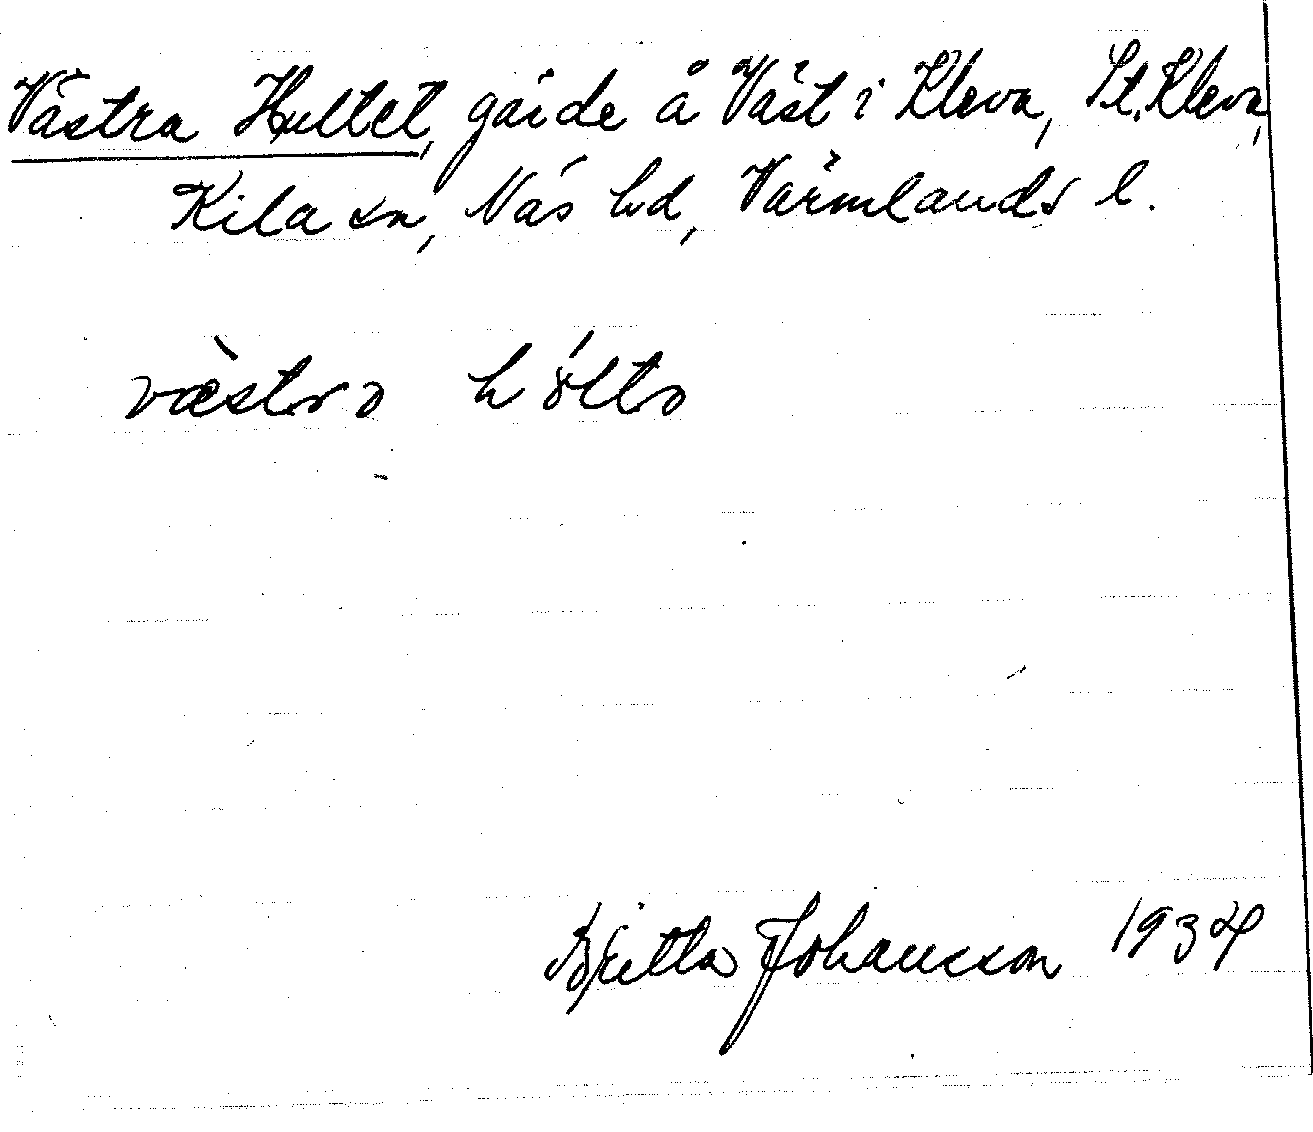 Västra Hultet, gärde å Väst i Kleva, St. Kleva,
Kila sn, Näs hd, Värmlands l.
væ̀stra hólta
Britta Johansson 1934